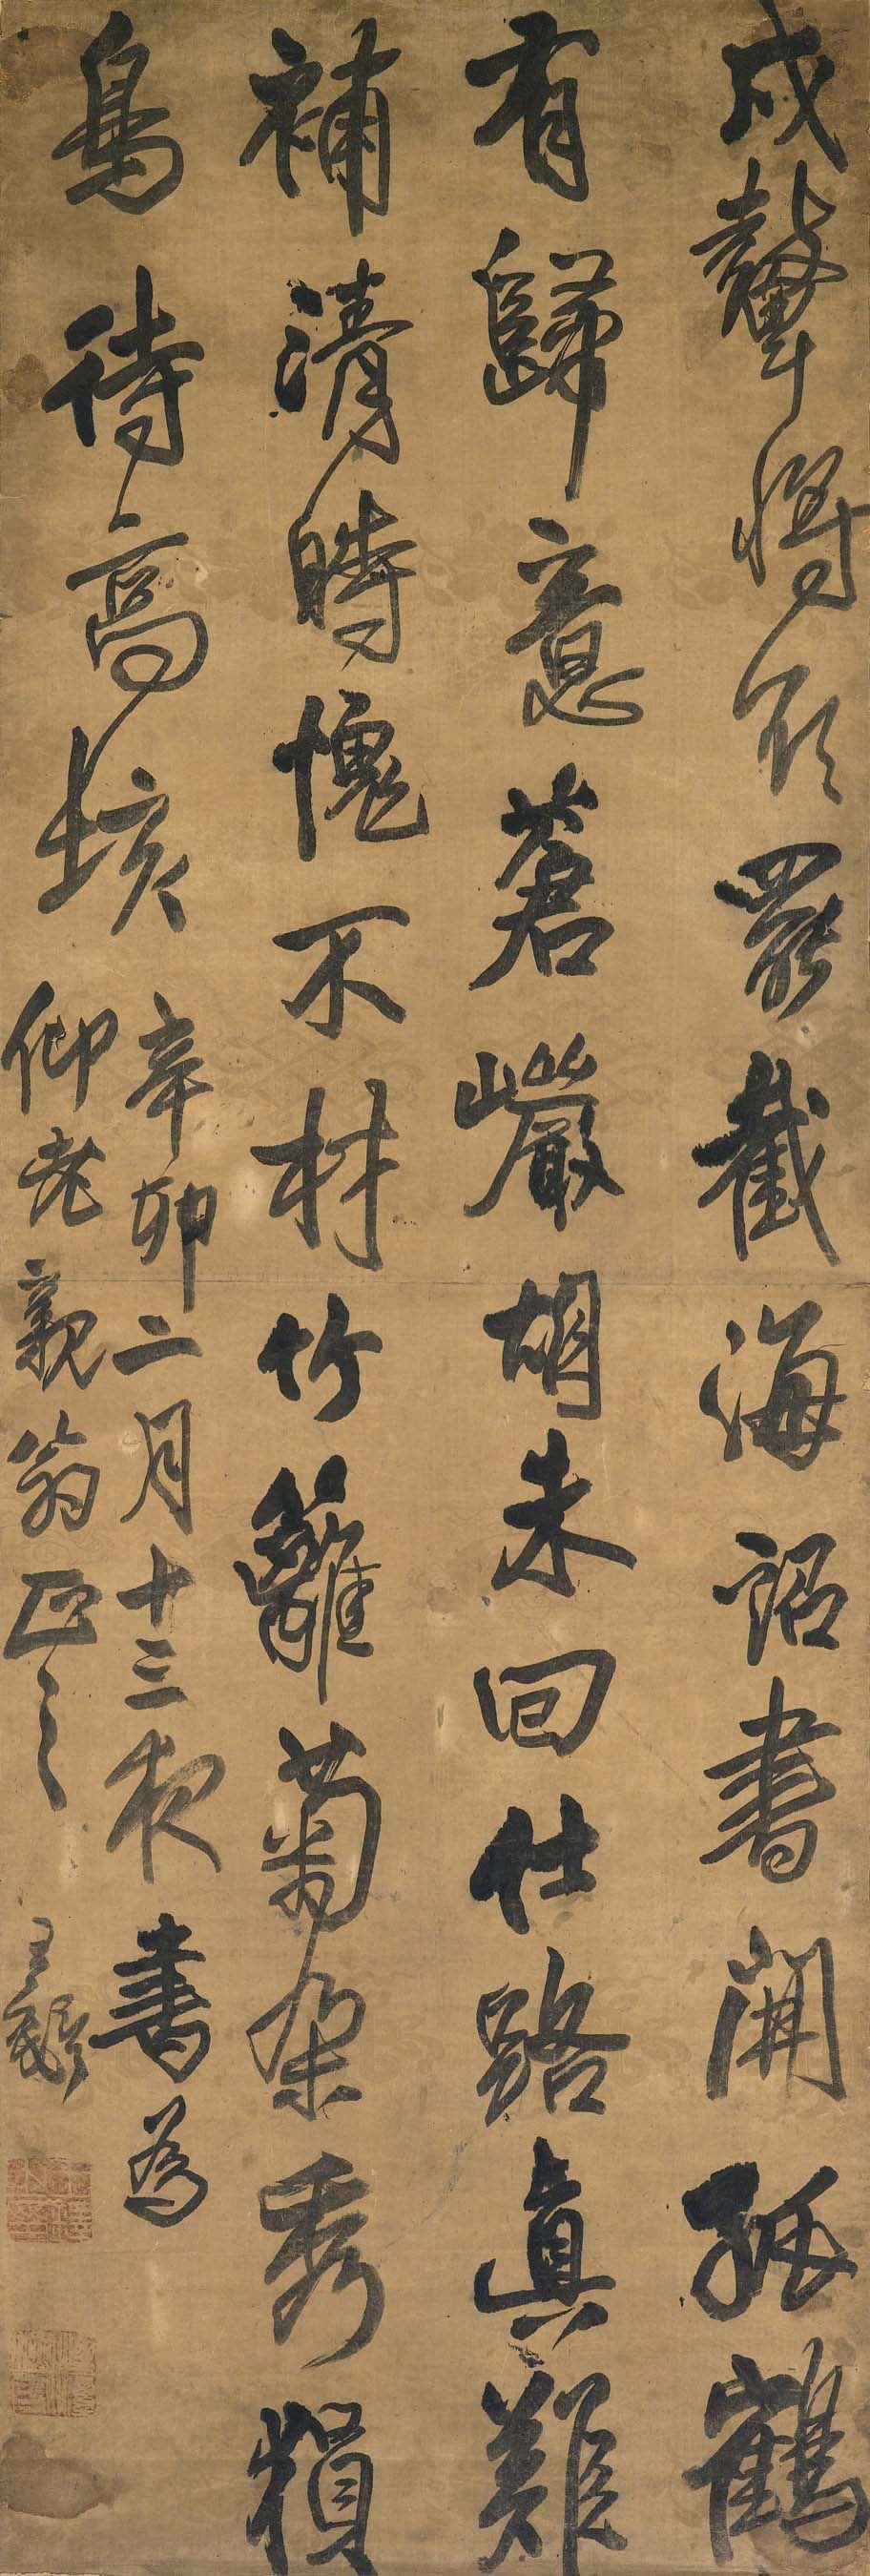 戍鼙將欲罷截海詔書開孤鶴
有歸意蒼巖胡未回仕路真難
補清時愧不材竹籬菊朵秀猿
鳥待高垓
辛卯二月十三夜書為
仰老親翁正之
王鐸